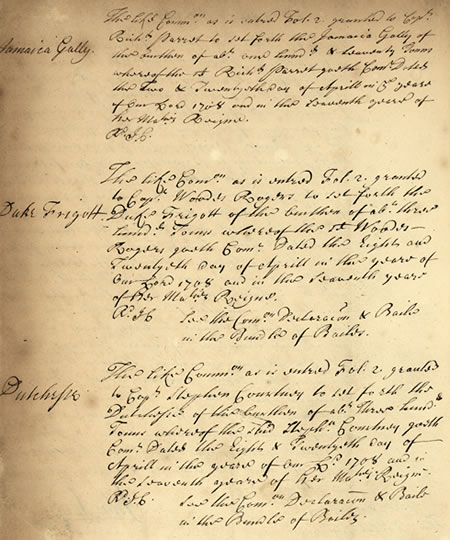 Jamaica Gally.
The like Comm.on as is entred Fol. 2. granted to Cap.t
Rich.d Parret to set forth the Jamaica Gally of
the burthen of ab.t one hund.d & Seaventy Tonns
whereof the s.d Rich.d Parret goeth Com.r Dated
the two & Twentyeth day of Aprill in the yeare
of our Lord 1708 and in the Seaventh yeare of
her Ma.ties Reigne.
Duke Frigott
The like Com.on as is entred Fol. 2. granted
to Cap.t Woodes Rogers to set forth the
Duke Frigott of the burthen of ab.t three
hund.d Tonns whereof the s.d Woodes
Rogers goeth Com.r Dated the Eight and
Twentyeth day of Aprill in the yeare of
our Lord 1708 and in the Seaventh yeare
of her Ma.ties Reigne.
See the Com.on Declaracon & Baile
in the Bundle of Bailes.
Dutchesse
The like Comm.on as is entred Fol. 2. granted
to Cap.t Stephen Courtney to set forth the
Dutchesse of the burthen of ab.t three hund.d
Tonns whereof the s.d Steph.n Courtney goeth
Com.r Dated the Eight & Twentyeth day of
Aprill in the yeare of our L.d 1708 and in
the Seaventh yeare of her Ma.ties Reigne.
See the Com.on Declaracon & Baile
in the Bundle of Bailes.